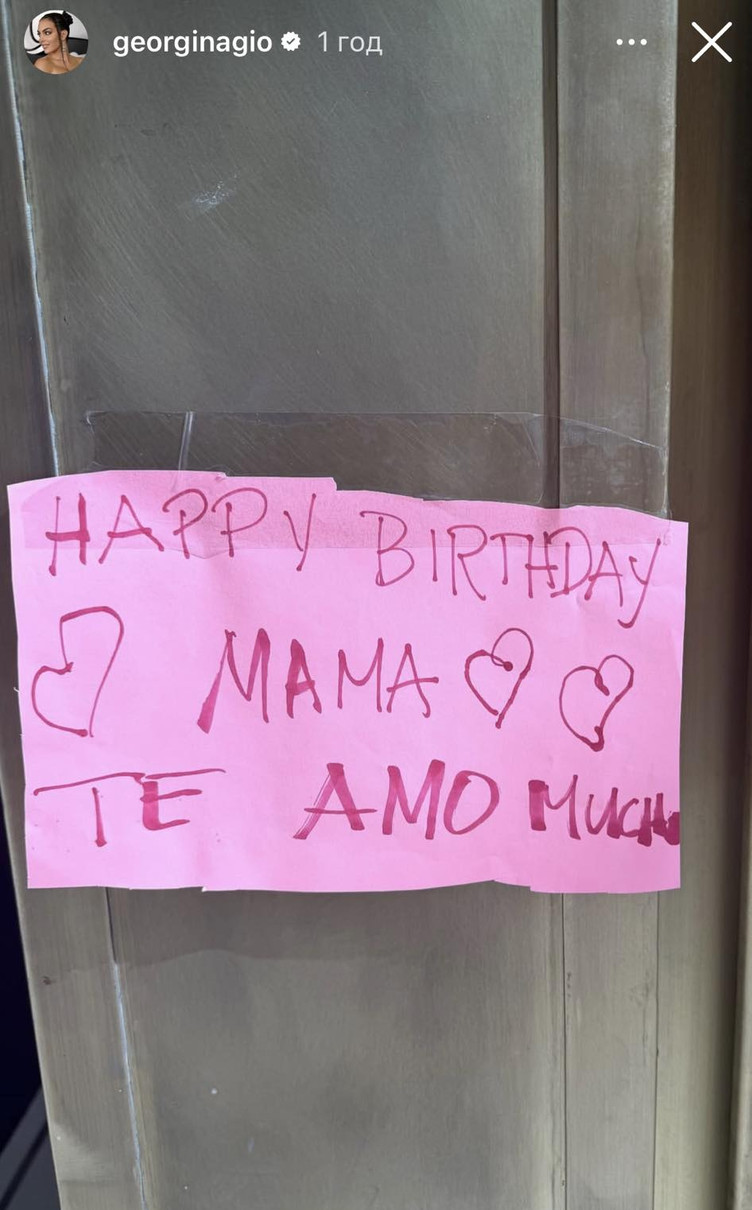 georginagio 1 год
HAPPY BIRTHDAY
MAMA
TE AMO MUCHO